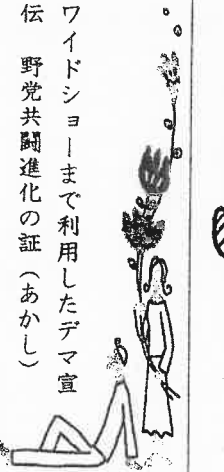 ワイドショーまで利用したデマ宣
伝　野党共闘進化の証（あかし）